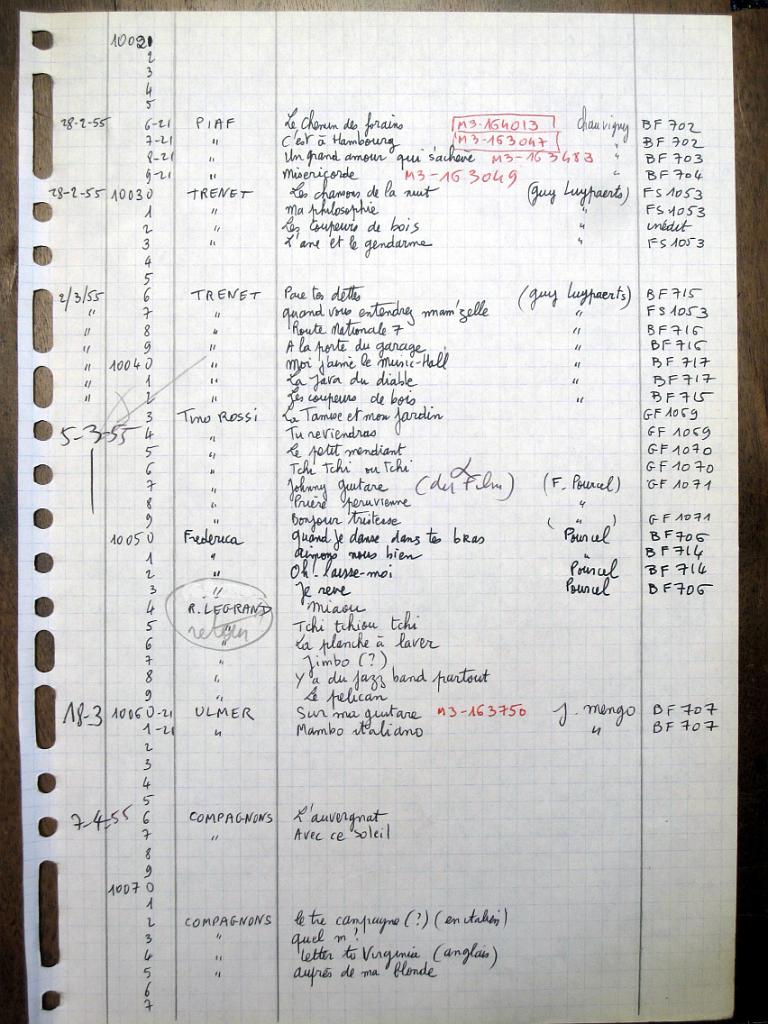 10021
2
3
4
5
28-2-55 6-21 PIAF Le Chemin des forains M3-164013 Chauvigny BF 702
7-21 " C'est à Hambourg M3-163047 " BF 702
8-21 " Un grand amour qui s'achève M3-163483 " BF 703
9-21 " Misericorde M3-163049 " BF 704
28-2-55 10030 TRENET Les chansons de la nuit (Guy Luypaerts) FS 1053
1 " ma philosophie " FS 1053
2 " Les coupeurs de bois " inédit
3 " L'ane et le gendarme " FS 1053
4
5
2/3/55 6 TRENET Paie tes dettes (Guy Luypaerts) BF 715
" 7 " quand vous entendrez mam'zelle " FS 1053
" 8 " Route Nationale 7 " BF 716
" 9 " A la porte du garage " BF 716
" 10040 " Moi j'aime le Music-Hall " BF 717
" 1 " La Java du diable " BF 717
" 2 " Les coupeurs de bois " BF 715
3 Tino ROSSI La Tamise et mon jardin GF 1069
5-3-55 4 " Tu reviendras GF 1069
5 " Le petit mendiant GF 1070
6 " Tchi Tchi ou Tchi GF 1070
7 " Johnny guitare (du Film) (F. Pourcel) GF 1071
8 " Prière peruvienne "
9 " Bonjour tristesse ( " ) GF 1071
10050 Frederica quand je danse dans tes bras Pourcel BF 706
1 " aimons nous bien " BF 714
2 " Oh! laisse-moi Pourcel BF 714
3 " Je reve Pourcel BF 706
4 R. LEGRAND Miaou
5 " Tchi tchiou tchi
6 " La planche à laver
7 " Jimbo (?)
8 " Y a du jazz band partout
9 " Le pelican
18-3 10060-21 ULMER Sur ma guitare M3-163750 J. Mengo BF 707
1-21 " Mambo italiano " BF 707
2
3
4
5
7-4-55 6 COMPAGNONS L'auvergnat
7 " Avec ce soleil
8
9
10070
1
2 COMPAGNONS campagne (?) (en italien)
3 " quel m?
4 " letter to Virginia (anglais)
5 " auprès de ma blonde
6
7